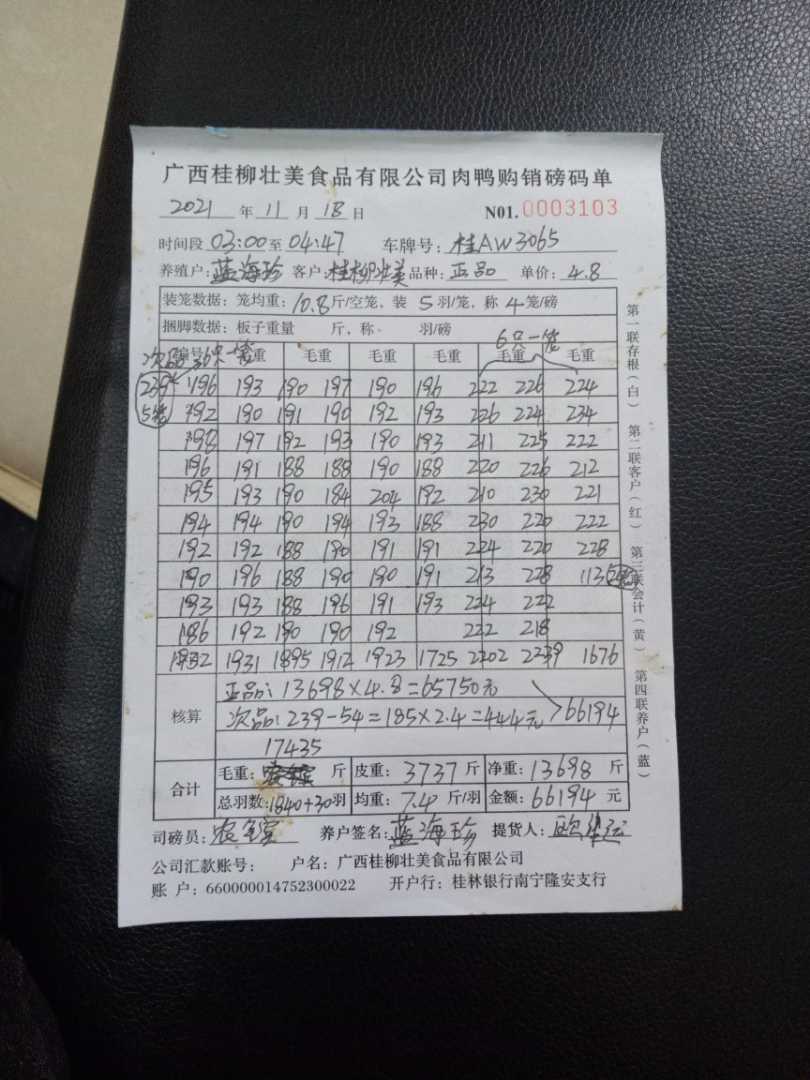 广西桂柳壮美食品有限公司肉鸭购销磅码单
2021 年 11 月 18 日 N01.0003103
时间段 03:00至 04:47 车牌号: 桂AW3065
养殖户: 蓝海珍 客户: 桂柳壮美 品种: 正品 单价: 4.8
装笼数据: 笼均重: 10.8斤/空笼, 装 5 羽/笼, 称 4 笼/磅
捆脚数据: 板子重量 斤, 称 羽/磅
6只一笼
编号 毛重 毛重 毛重 毛重 毛重 毛重
239 196 193 190 197 190 196 222 226 224
5笼 192 190 191 190 192 193 226 224 234
198 197 192 193 190 193 211 225 222
196 191 188 188 190 188 220 226 212
195 193 190 184 204 192 210 230 221
194 194 190 194 193 188 230 220 222
192 192 188 190 191 191 224 220 228
190 196 188 190 190 191 213 228 113
193 193 188 196 191 193 224 222
186 192 190 190 192 222 218
1932 1931 1895 1912 1923 1725 2202 2239 1676
核算 正品: 13698×4.8=65750元
次品: 239-54=185×2.4=444元 >66194
17435
合计 毛重: 斤 皮重: 3737 斤 净重: 13698 斤
总羽数: 1840+30羽 均重: 7.4 斤/羽 金额: 66194 元
司磅员: 养户签名: 蓝海珍 提货人:
公司汇款账号: 户名: 广西桂柳壮美食品有限公司
账 户: 660000014752300022 开户行: 桂林银行南宁隆安支行
第一联存根(白) 第二联客户(红) 第三联会计(黄) 第四联养户(蓝)